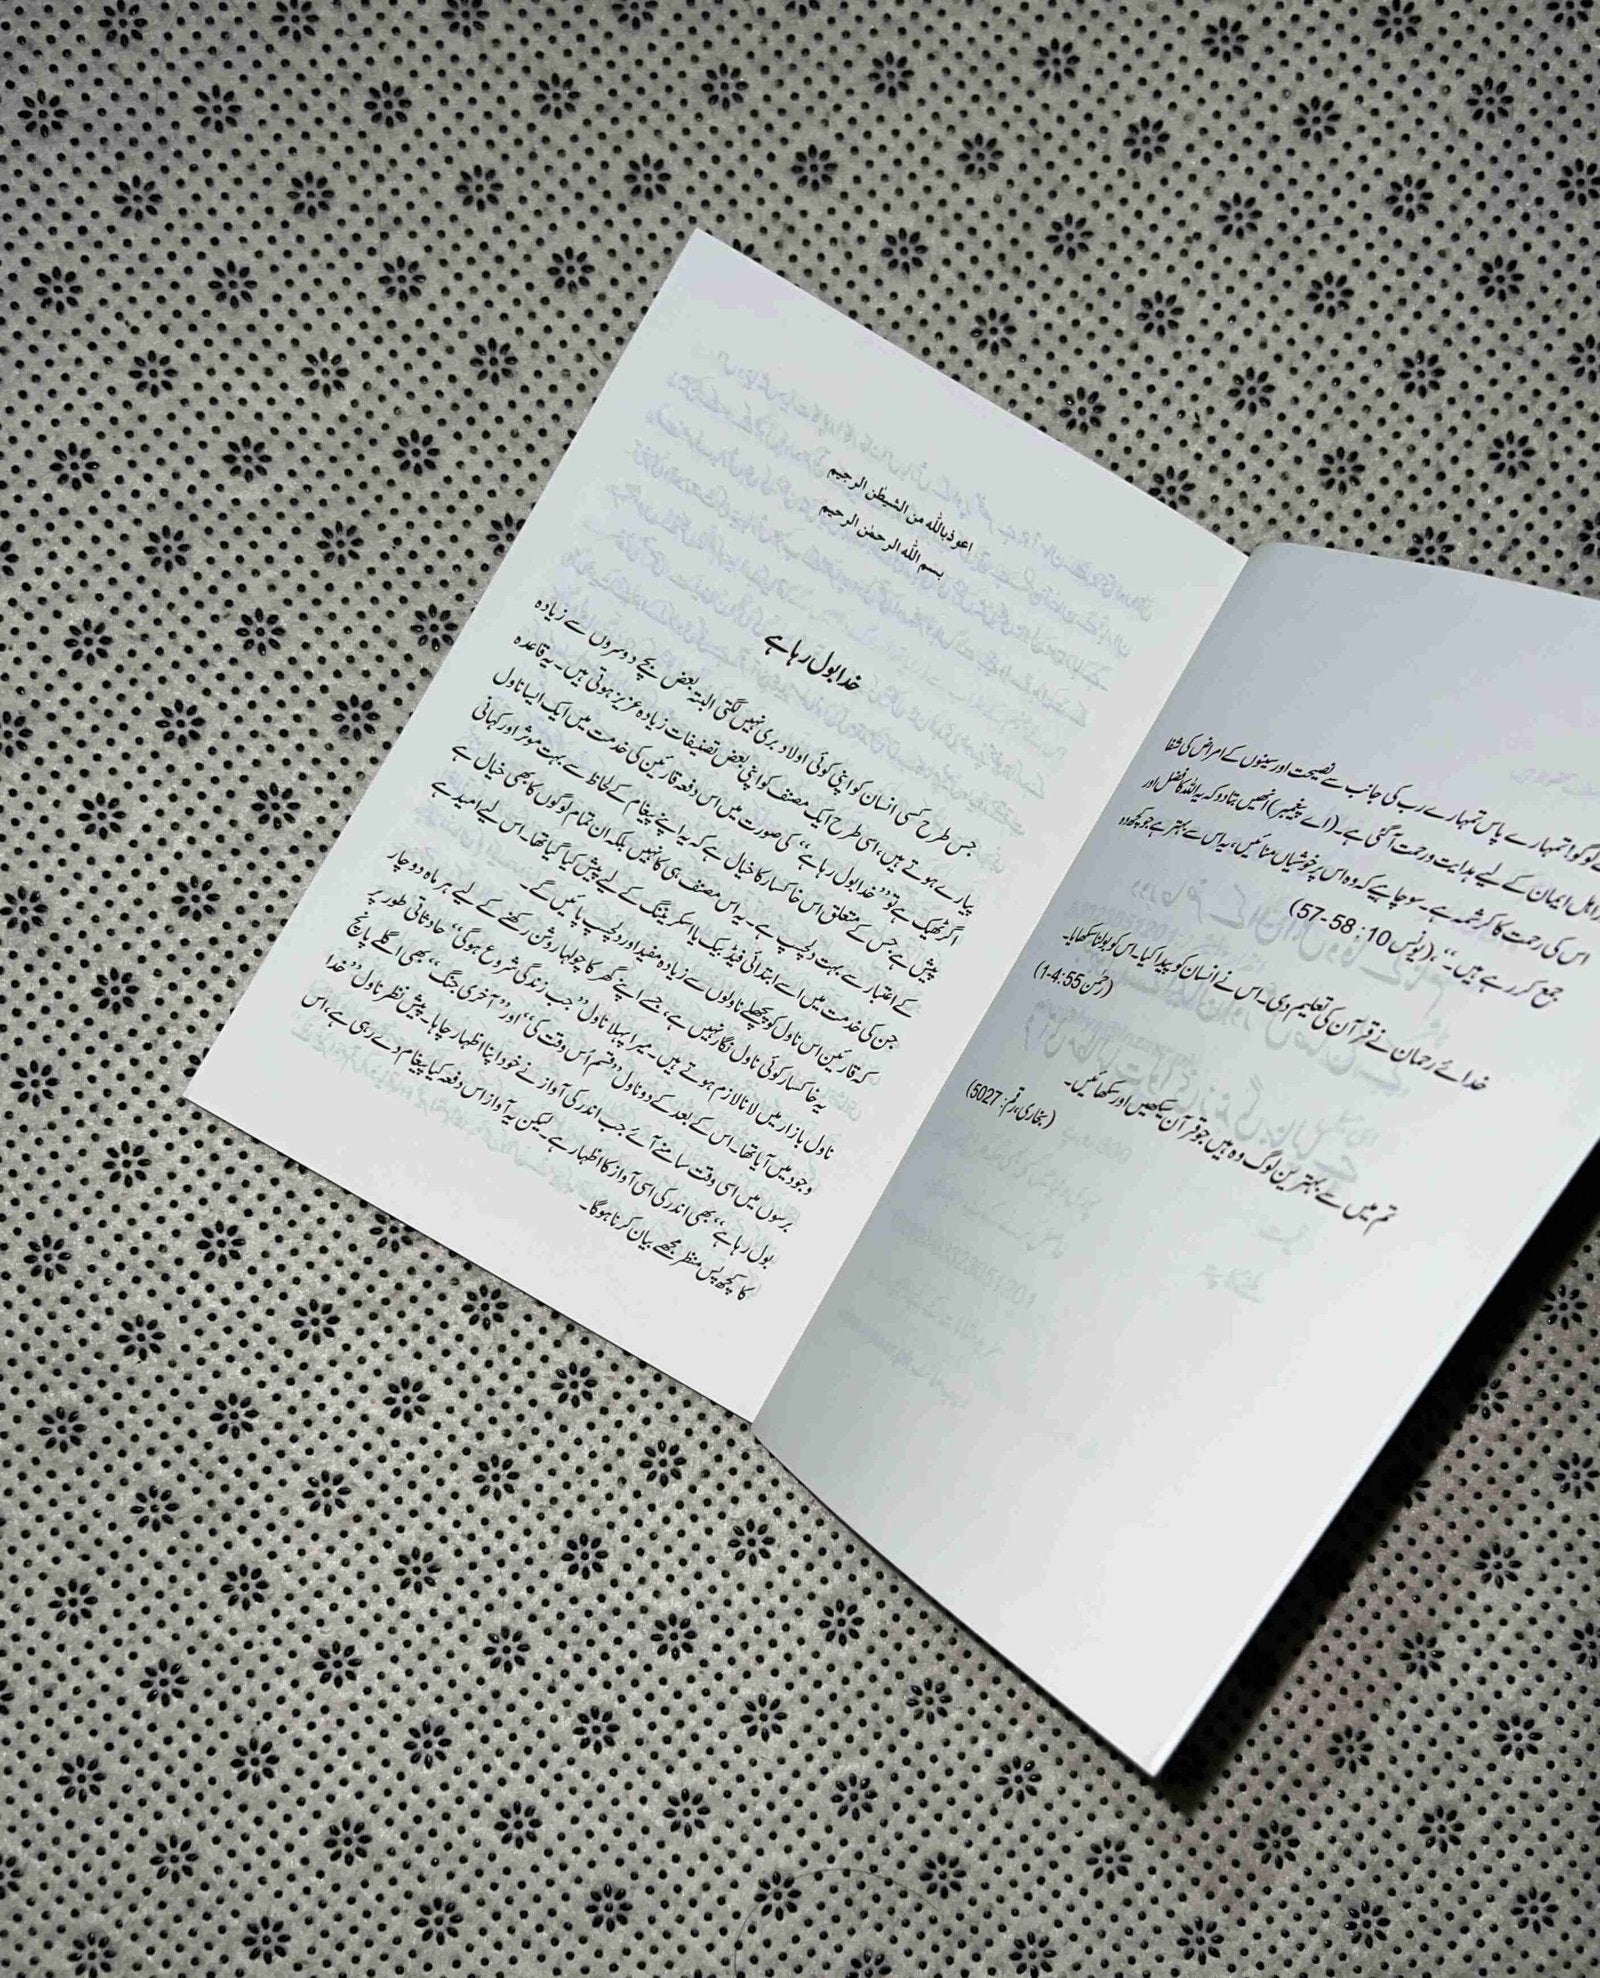 لوگو! تمہارے پاس تمہارے رب کی جانب سے نصیحت اور سینوں کے امراض کی شفا
اور اہل ایمان کے لیے ہدایت و رحمت آگئی ہے۔ (اے پیغمبر) انھیں بتا دو کہ یہ اللہ کا فضل اور
اس کی رحمت کا کرشمہ ہے۔ سو چاہیے کہ وہ اس پر خوشیاں منائیں، یہ اس سے بہتر ہے جو کچھ وہ
جمع کر رہے ہیں۔‘‘، (یونس 10: 58-57)
خدائے رحمان نے قرآن کی تعلیم دی۔ اس نے انسان کو پیدا کیا۔ اس کو بولنا سکھایا۔
(رحمٰن 55:4-1)
تم میں سے بہترین لوگ وہ ہیں جو قرآن سیکھیں اور سکھائیں۔
(بخاری، رقم: 5027)
اعوذ باللّٰہ من الشیطٰن الرجیم
بسم اللّٰہ الرحمٰن الرحیم
خدا بول رہا ہے
جس طرح کسی انسان کو اپنی کوئی اولاد بری نہیں لگتی البتہ بعض بچے دوسروں سے زیادہ
پیارے ہوتے ہیں، اسی طرح ایک مصنف کو اپنی بعض تصنیفات زیادہ عزیز ہوتی ہیں۔ یہ قاعدہ
اگر ٹھیک ہے تو ’’خدا بول رہا ہے‘‘ کی صورت میں اس دفعہ قارئین کی خدمت میں ایک ایسا ناول
پیش ہے جس کے متعلق اس خاکسار کا خیال ہے کہ یہ اپنے پیغام کے لحاظ سے بہت موثر اور کہانی
کے اعتبار سے بہت دلچسپ ہے۔ یہ اس مصنف ہی کا نہیں بلکہ ان تمام لوگوں کا بھی خیال ہے
جن کی خدمت میں اسے ابتدائی فیڈ بیک یا اسکریننگ کے لیے پیش کیا گیا تھا۔ اس لیے امید ہے
کہ قارئین اس ناول کو پچھلے ناولوں سے زیادہ مفید اور دلچسپ پائیں گے۔
یہ خاکسار کوئی ناول نگار نہیں ہے، جسے اپنے گھر کا چولہا روشن رکھنے کے لیے ہر ماہ دو چار
ناول بازار میں لانا لازم ہوتے ہیں۔ میرا پہلا ناول ’’جب زندگی شروع ہوگی‘‘ حادثاتی طور پر
وجود میں آیا تھا۔ اس کے بعد کے دو ناول ’’قسم اُس وقت کی‘‘ اور ’’آخری جنگ‘‘ بھی اگلے پانچ
برسوں میں اسی وقت سامنے آئے جب اندر کی آواز نے خود اپنا اظہار چاہا۔ پیش نظر ناول ’’خدا
بول رہا ہے‘‘ بھی اندر کی اسی آواز کا اظہار ہے۔ لیکن یہ آواز اس دفعہ کیا پیغام دے رہی ہے، اس
کا کچھ پس منظر مجھے بیان کرنا ہوگا۔